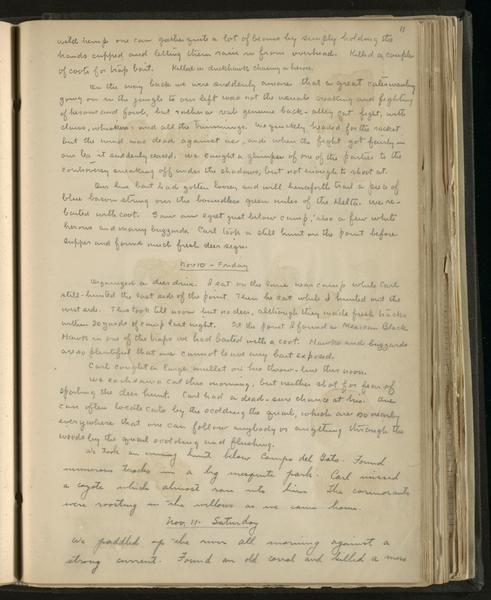 11
wild hemp one can gather quite a lot of beans by simply holding the
hands cupped and letting them rain in from overhead. Killed a couple
of coots for trap bait. Killed a duckhawk chasing a heron.
On the way back we were suddenly aware that a great caterwauling
going on in the jungle to our left was not the usual croaking and fighting
of herons and fowl, but rather a real genuine back-alley cat fight, with
claws, whiskers and all the trimmings. We quickly headed for the racket
but the wind was dead against us, and when the fight got fairly in
our it suddenly ceased. We caught a glimpse of one of the parties to the
controversy sneaking off under the shadows, but not enough to shoot at.
Our bait had gotten and will henceforth trail a pea of
blue bacon strung over the boundless green miles of the Delta. We re-
baited with coot. Saw an egret just below camp, also a few white
herons and many buzzards. Carl took a still hunt on the point before
supper and found much fresh deer sign.
Nov 10 - Friday
Organized a deer drive. I sat on the near camp while Carl
still-hunted the east side of the point. Then he sat while I hunted out the
west side. This took till noon but no deer, although they made fresh tracks
within 20 yards of camp last night. At the point I found a Mexican Black
Hawk in one of the traps we had baited with a coot. Hawks and buzzards
are so plentiful that one cannot leave any bait exposed.
Carl caught a large mullet on his throw-line this noon.
We each saw a cat this morning, but neither shot for fear of
spoiling the deer hunt. Carl had a dead-sure chance at his. One
can often locate cats by the scolding of the quail, which are so nearly
everywhere that one can follow anybody or anything through the
woods by the quail scolding and flushing.
We took an evening hunt below Campo del Gato. Found
numerous tracks in a big mesquite park. Carl missed
a coyote which almost ran into him. The cormorants
were roosting in the willows as we came home.
Nov. 11. Saturday
We paddled up the river all morning against a
strong current. Found an old corral and killed a mess